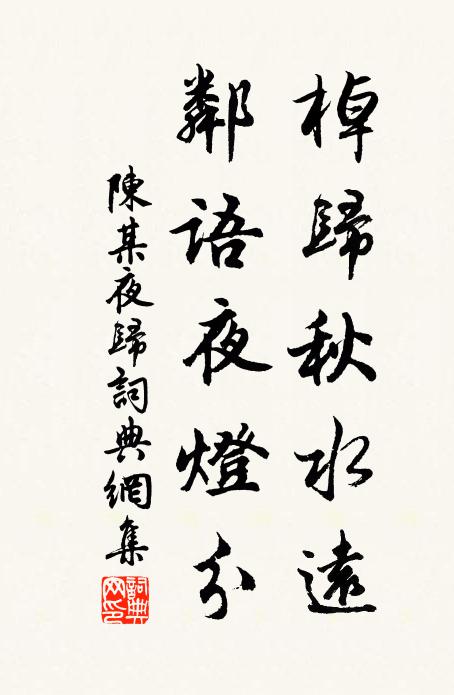 棹歸秋水遠
鄰語夜燈分
陳某夜歸詞典網集
詞典网印